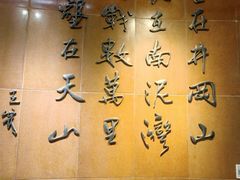 在井岡山
在南泥灣
戰數萬里
墾在天山
王震